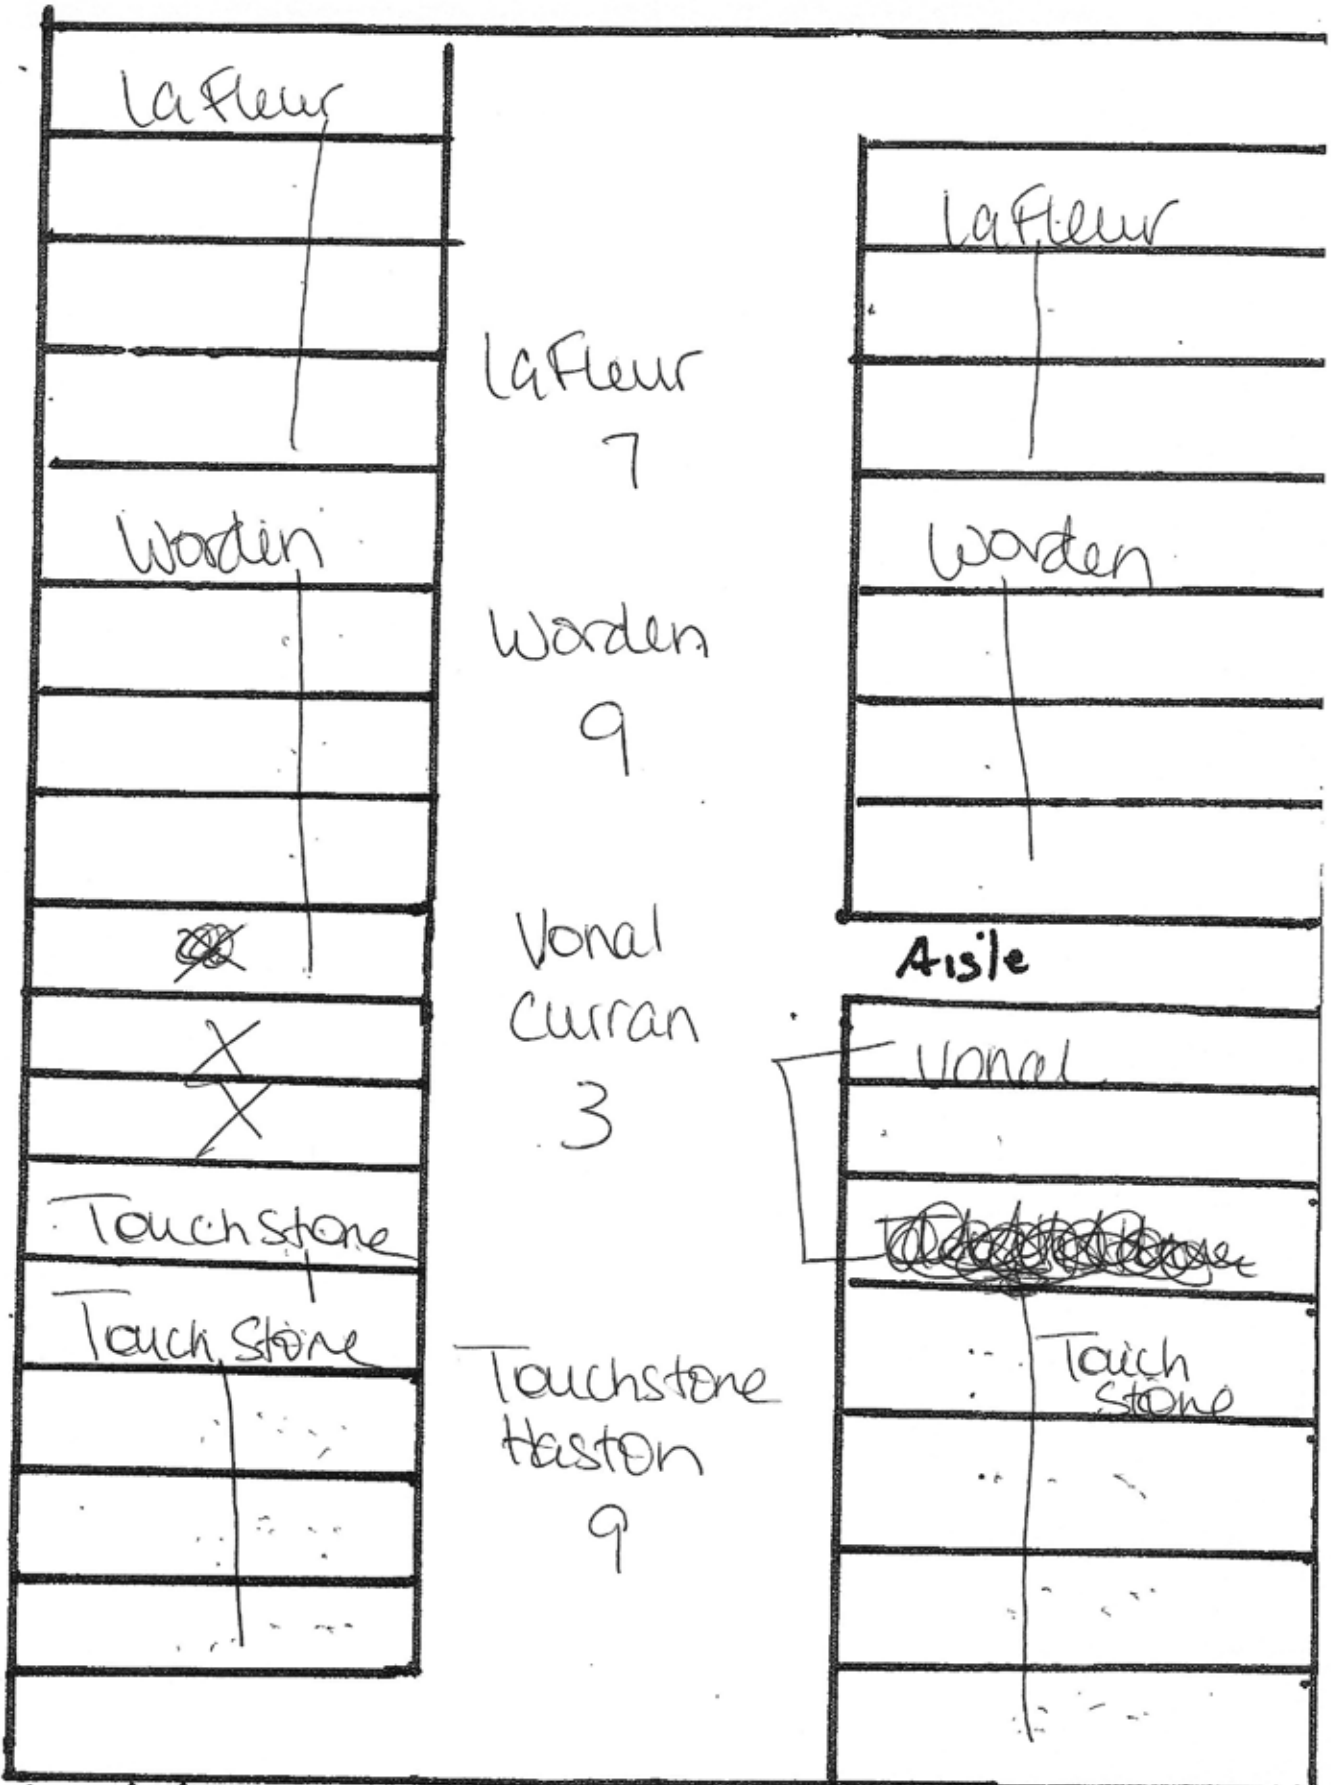 LaFleur
Worden
Touchstone
Touch Stone
LaFleur
7
Worden
9
Vonal
Curran
3
Touchstone
Haston
9
LaFleur
Worden
Aisle
Vonal
Touch
Stone